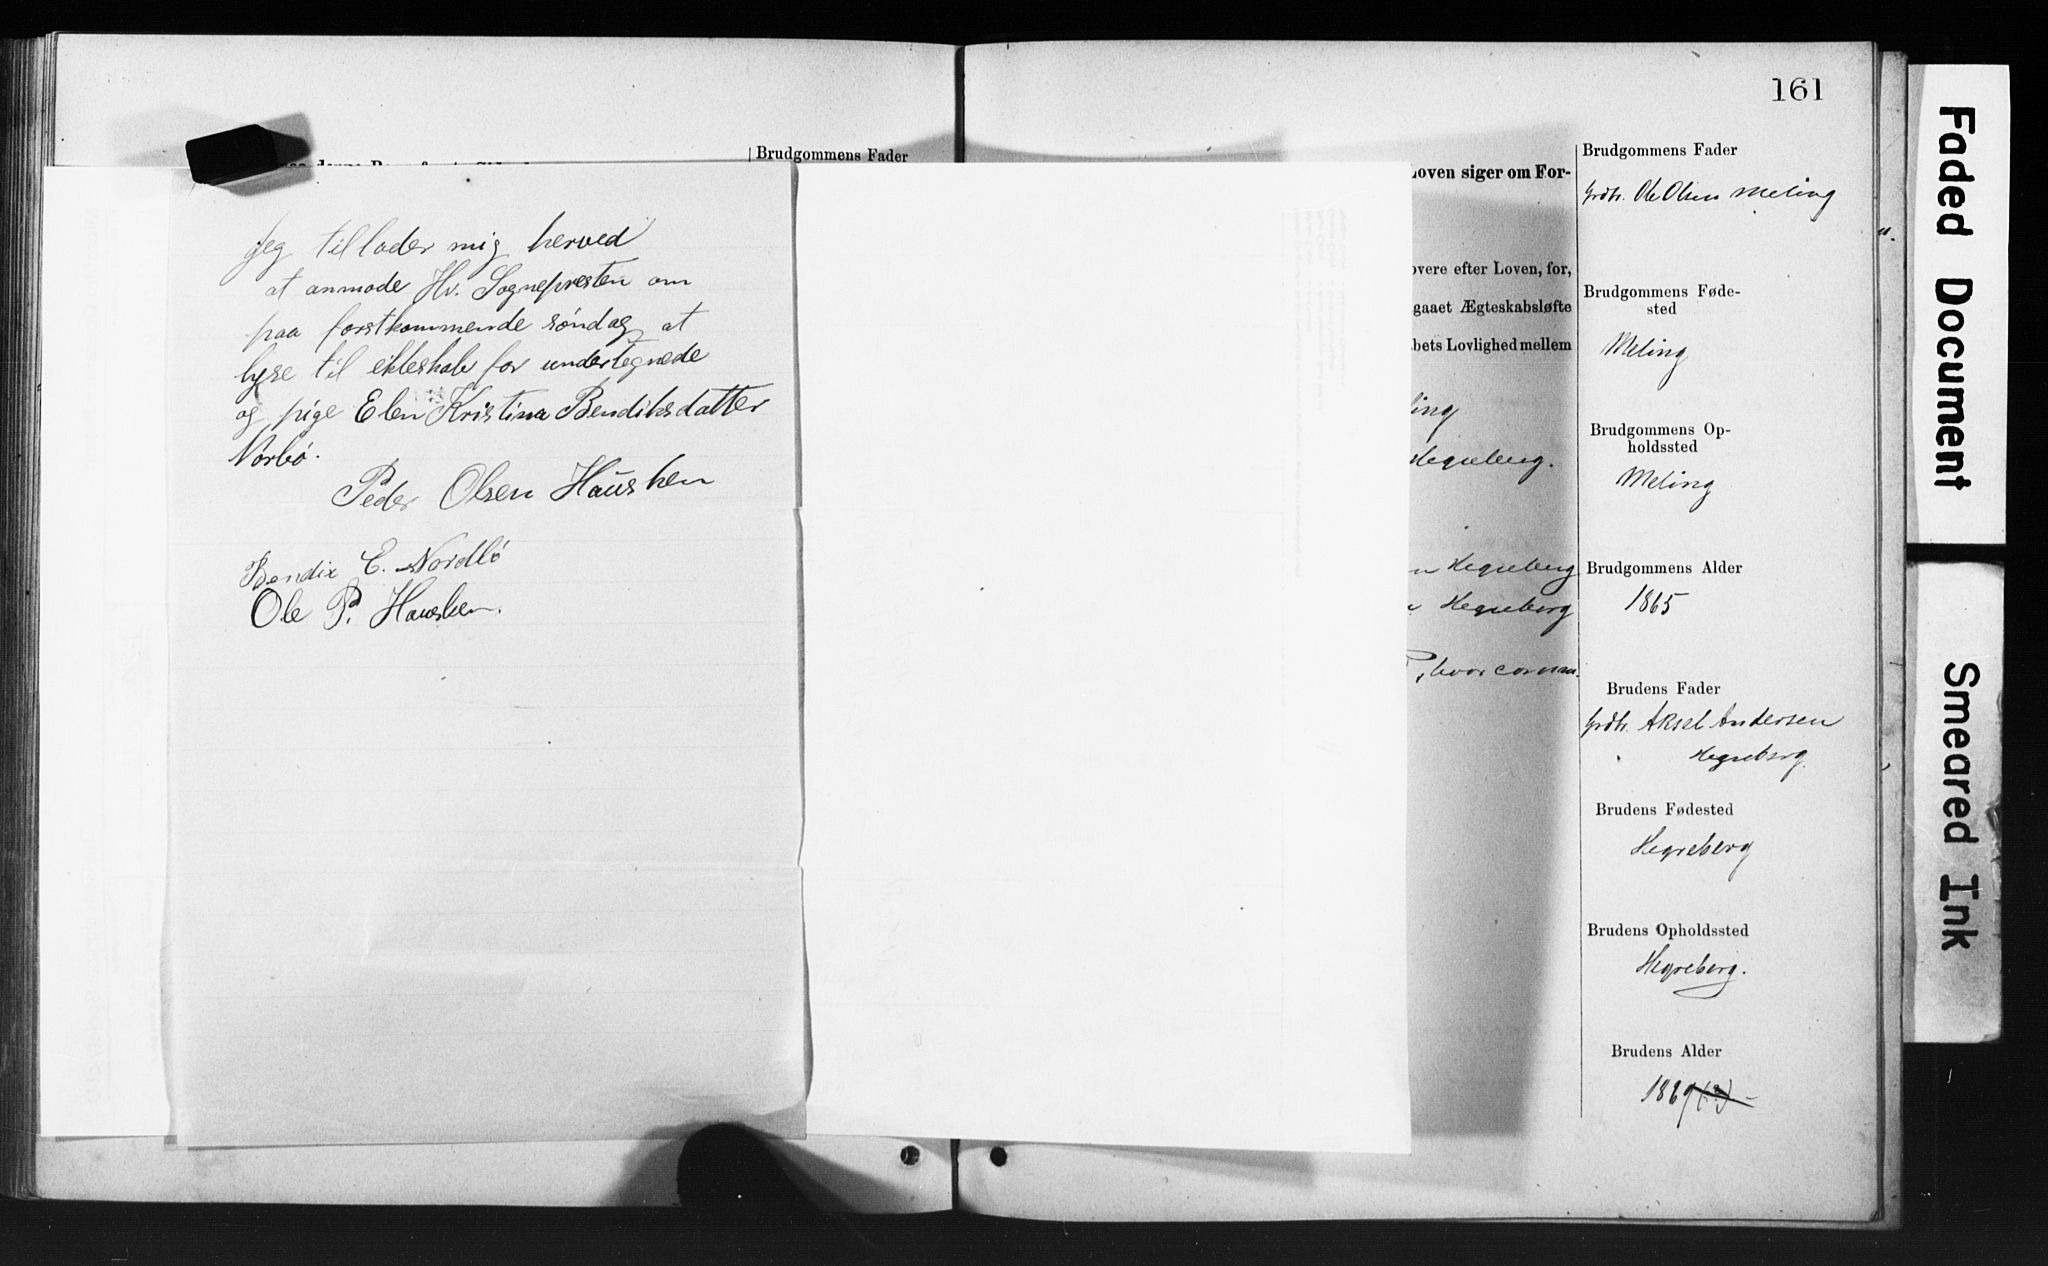 Brudgommens Fader
Jeg tillader mig herved
at anmode Hr. Sognepresten om
paa forstkommende søndag at
lyse til ekteskab for undertegnede
og pige Elen Kristina Bendiksdatter
Norbø.
Peder Olsen Hausken
Bendix E. Nordbø
Ole P. Hausken.
161
Loven siger om For-
overe efter Loven, for,
gaaet Ægteskabsløfte
bets Lovlighed mellem
ling
Hegreberg.
n Hegreberg
Hegreberg
Brudgommens Fader
Grdbr. Ole Olsen Meling
Brudgommens Føde-
sted
Meling
Brudgommens Op-
holdssted
Meling
Brudgommens Alder
1865
Brudens Fader
Grdbr. Aksel Andersen
Hegreberg.
Brudens Fødested
Hegreberg
Brudens Opholdssted
Hegreberg.
Brudens Alder
1869
Faded Document
Smeared Ink